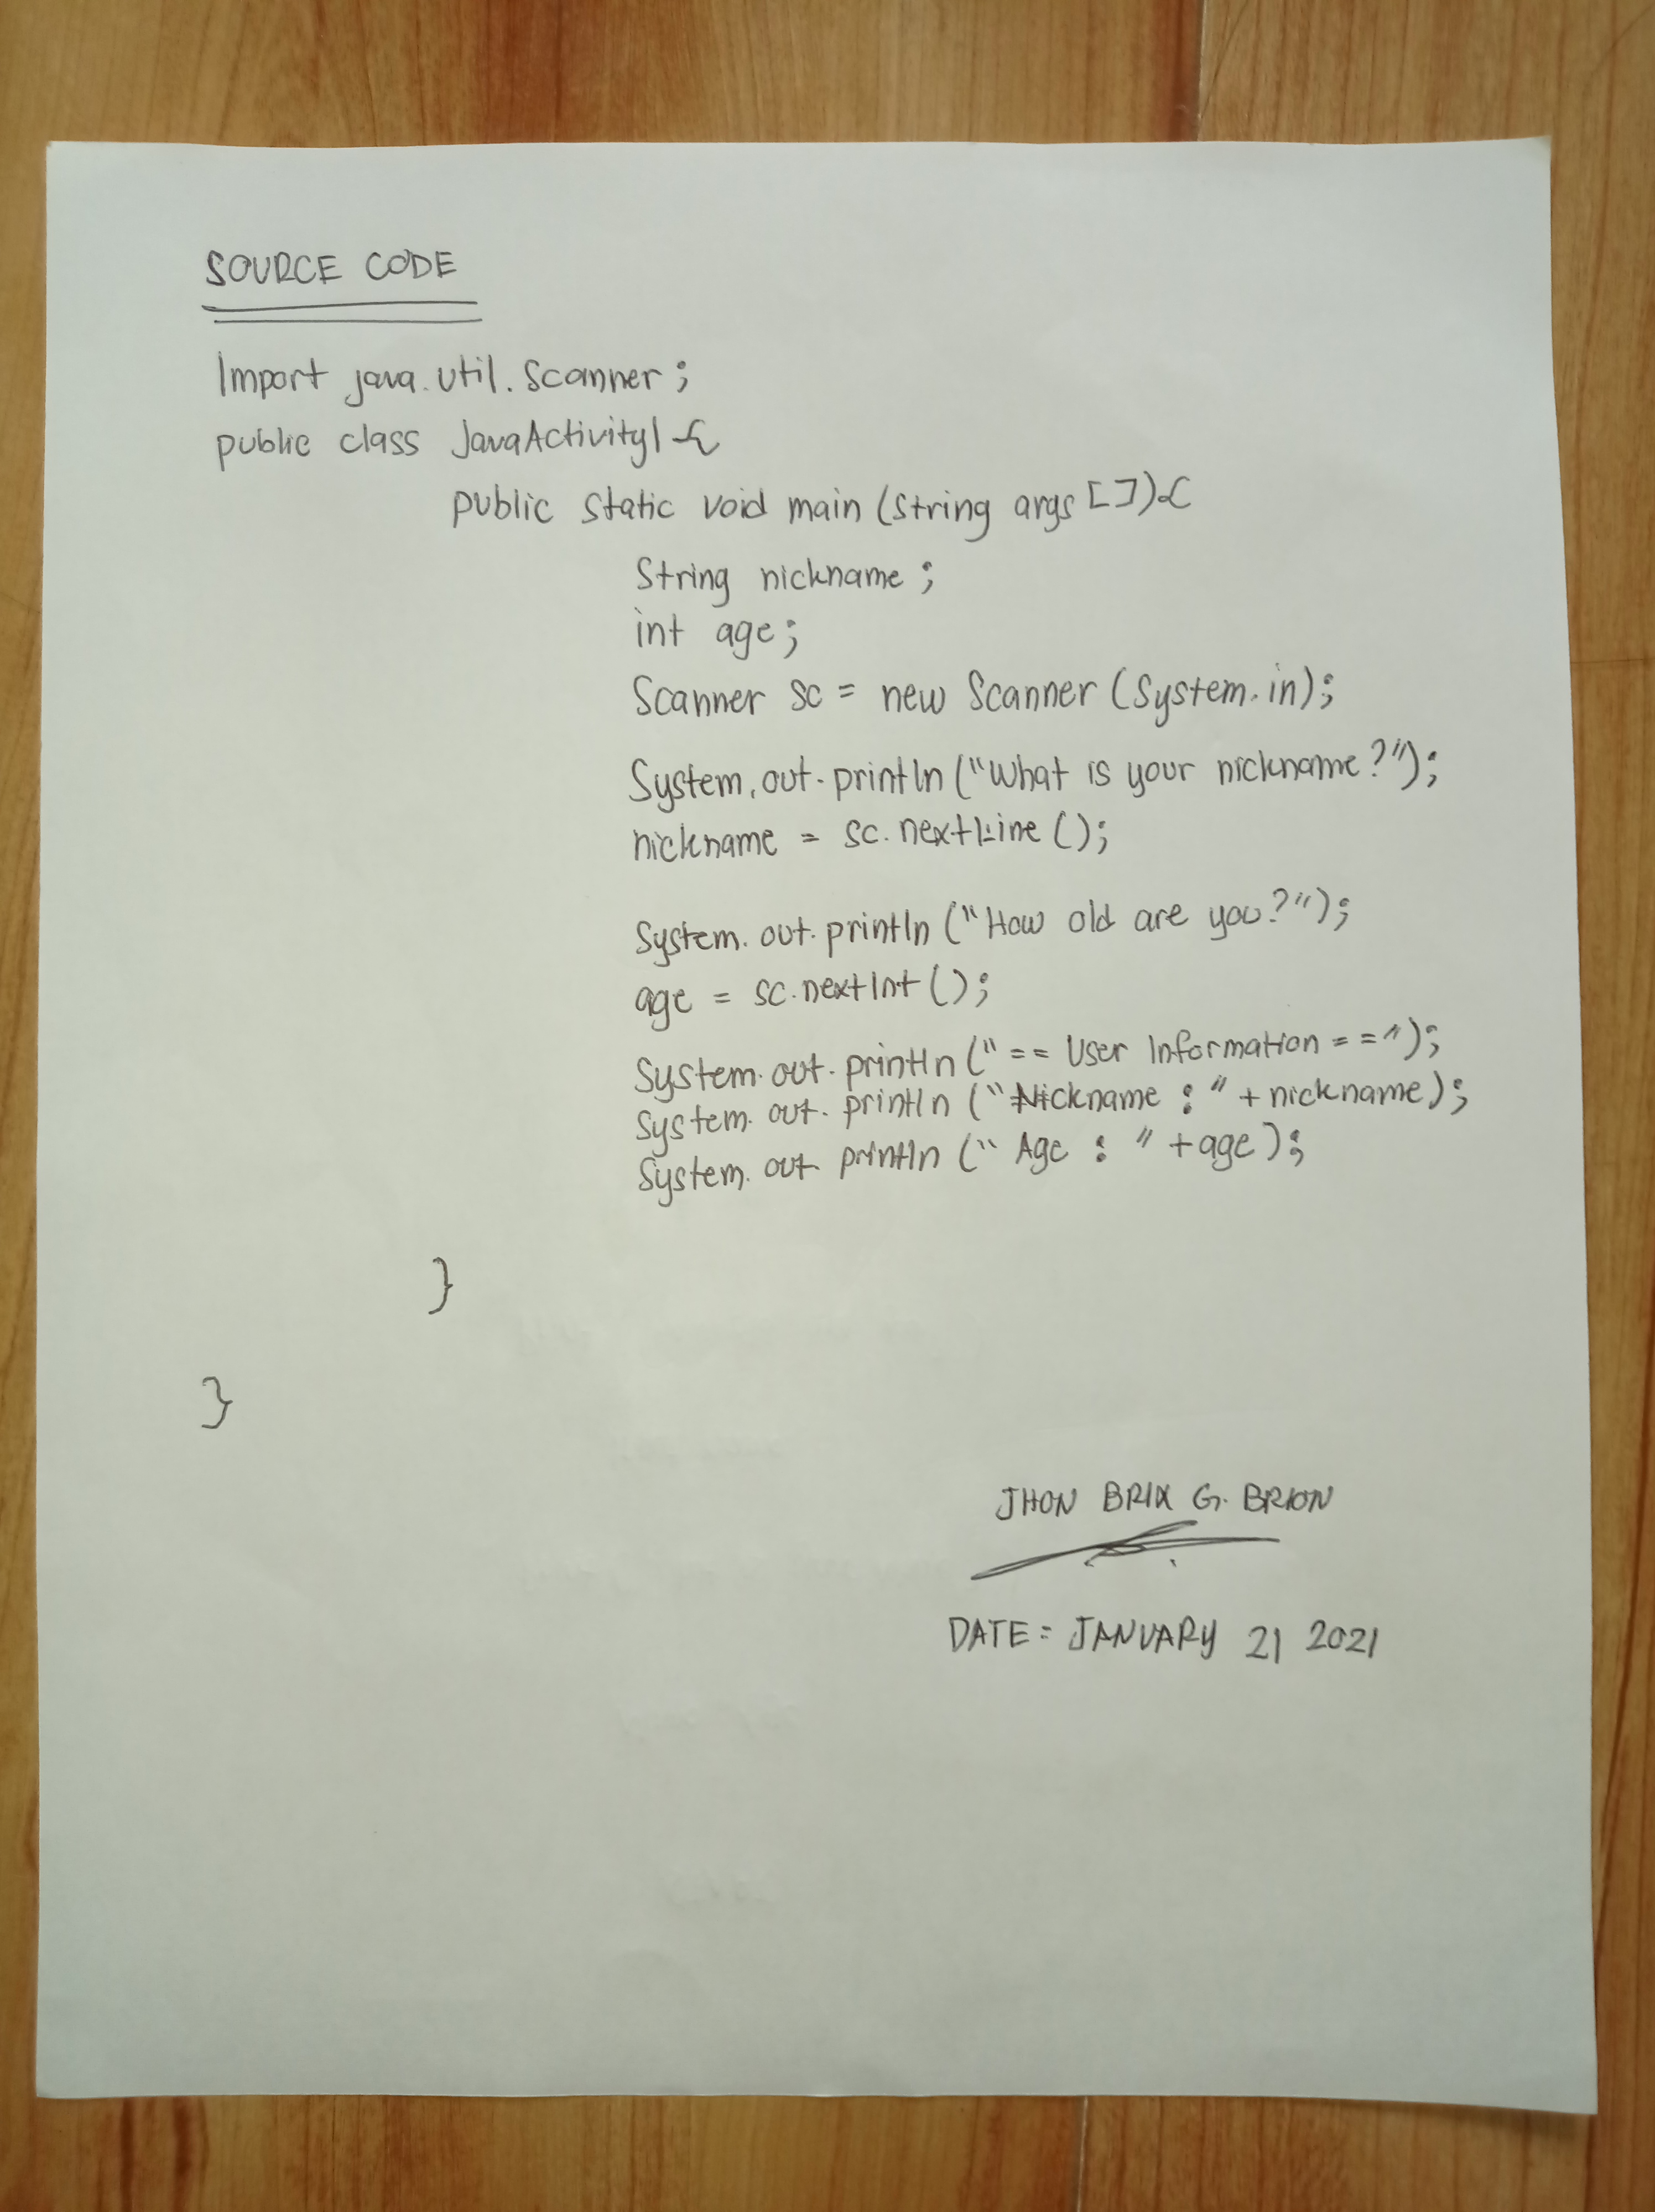 SOURCE CODE
Import java.util.Scanner;
public class JavaActivity1 {
public static void main (String args []){
String nickname;
int age;
Scanner sc = new Scanner (System.in);
System.out.println ("What is your nickname?");
nickname = sc.nextLine ();
System.out.println ("How old are you?");
age = sc.nextInt ();
System.out.println ("== User Information ==");
System.out.println ("Nickname : " + nickname);
System.out println (" Age : " +age);
}
}
JHON BRIX G. BRION
DATE = JANUARY 21 2021